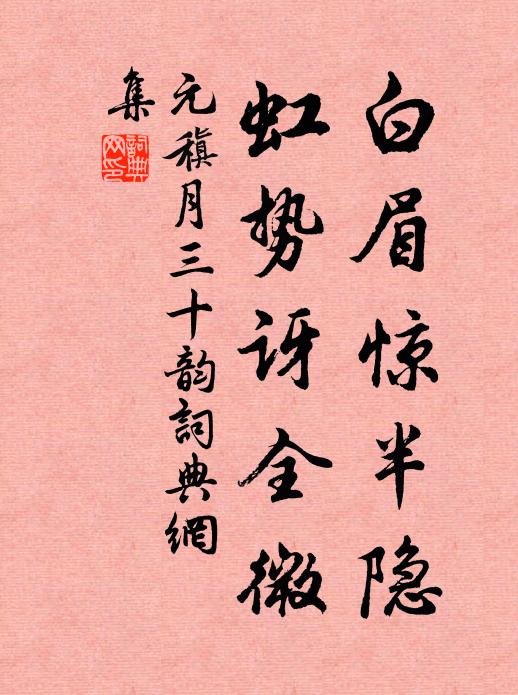 白眉惊半隐
虹势讶全微
元稹月三十韵词典網
集
詞典网印